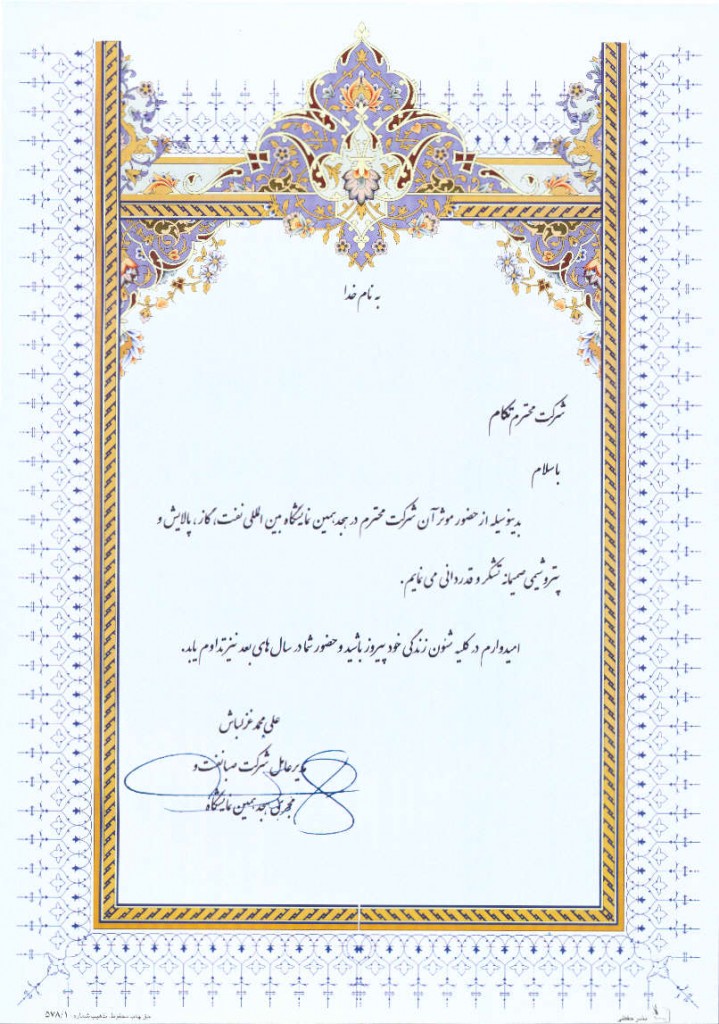 به نام خدا
شرکت محترم تکام
باسلام
بدینوسیله از حضور موثر آن شرکت محترم در هجدهمین نمایشگاه بین المللی نفت، گاز، پالایش و
پتروشیمی صمیمانه تشکر و قدردانی می نمایم.
امیدوارم در کلیه شئون زندگی خود پیروز باشید و حضور شما در سال های بعد نیز تداوم یابد.
علی محمد قزلباش
مدیرعامل شرکت صبا نفت و
مجری هجدهمین نمایشگاه
حق چاپ محفوظ ۵۷۸/۱